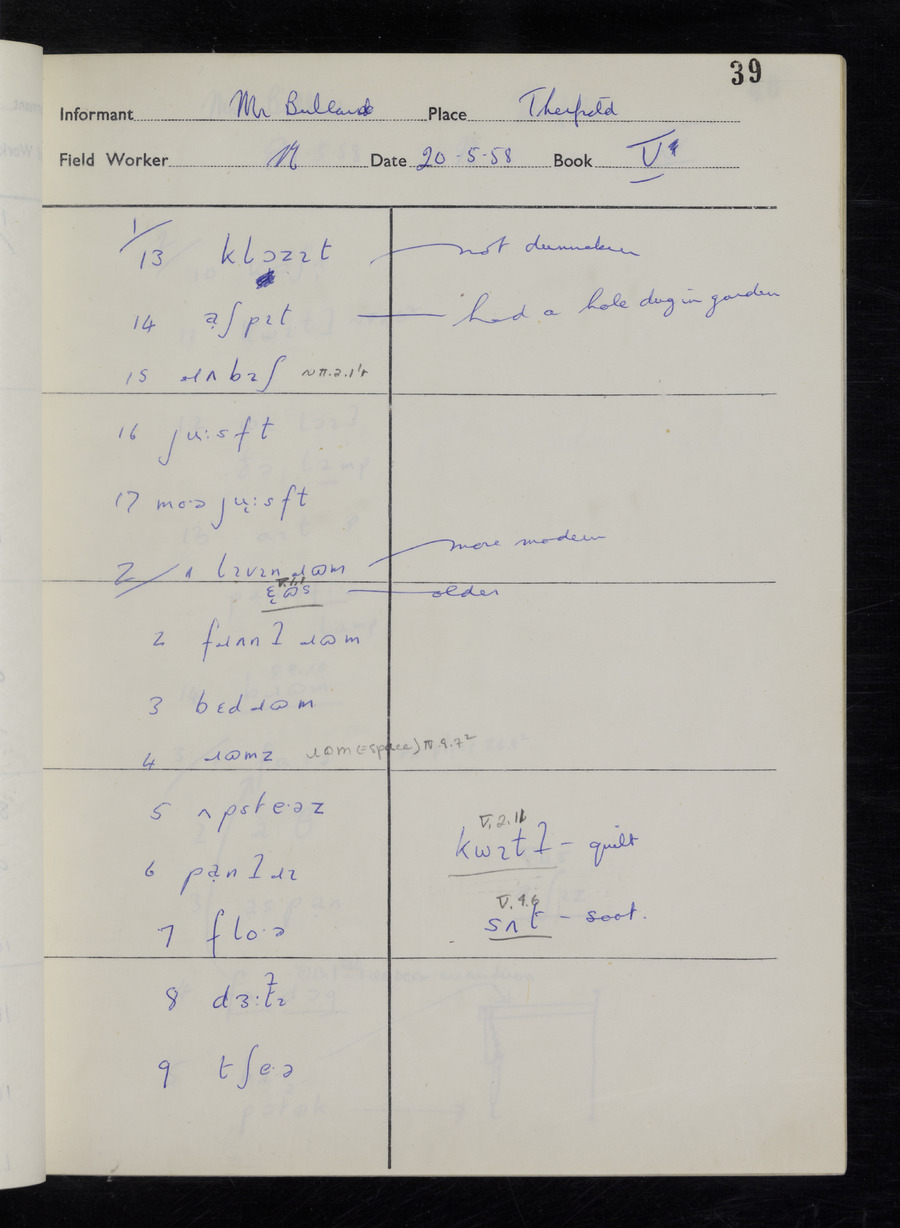 39
Informant Mr Bullard Place Therfield
Field Worker Date 20-5-58 Book V
1/
13 klɔzɪt not dunnekun
14 æʃpɪt had a hole dug in garden
15 ɹʌbɪʃ
16 juːsft
17 moə juːsft
2/ 1 lɪvɪn ɹɷm more modern
V.1.1
ɛɷs older
2 fɹʌnʔ ɹɷm
3 bɛdɹɷm
4 ɹɷmz ɹɷm (=space) IV.9.7²
5 ʌpsteəz
V.2.11
kwɪtʔ – quilt
6 pænʔɹɪ
V.4.6
sʌt – soot.
7 floə
8 dɜːtɪ
9 tʃeə